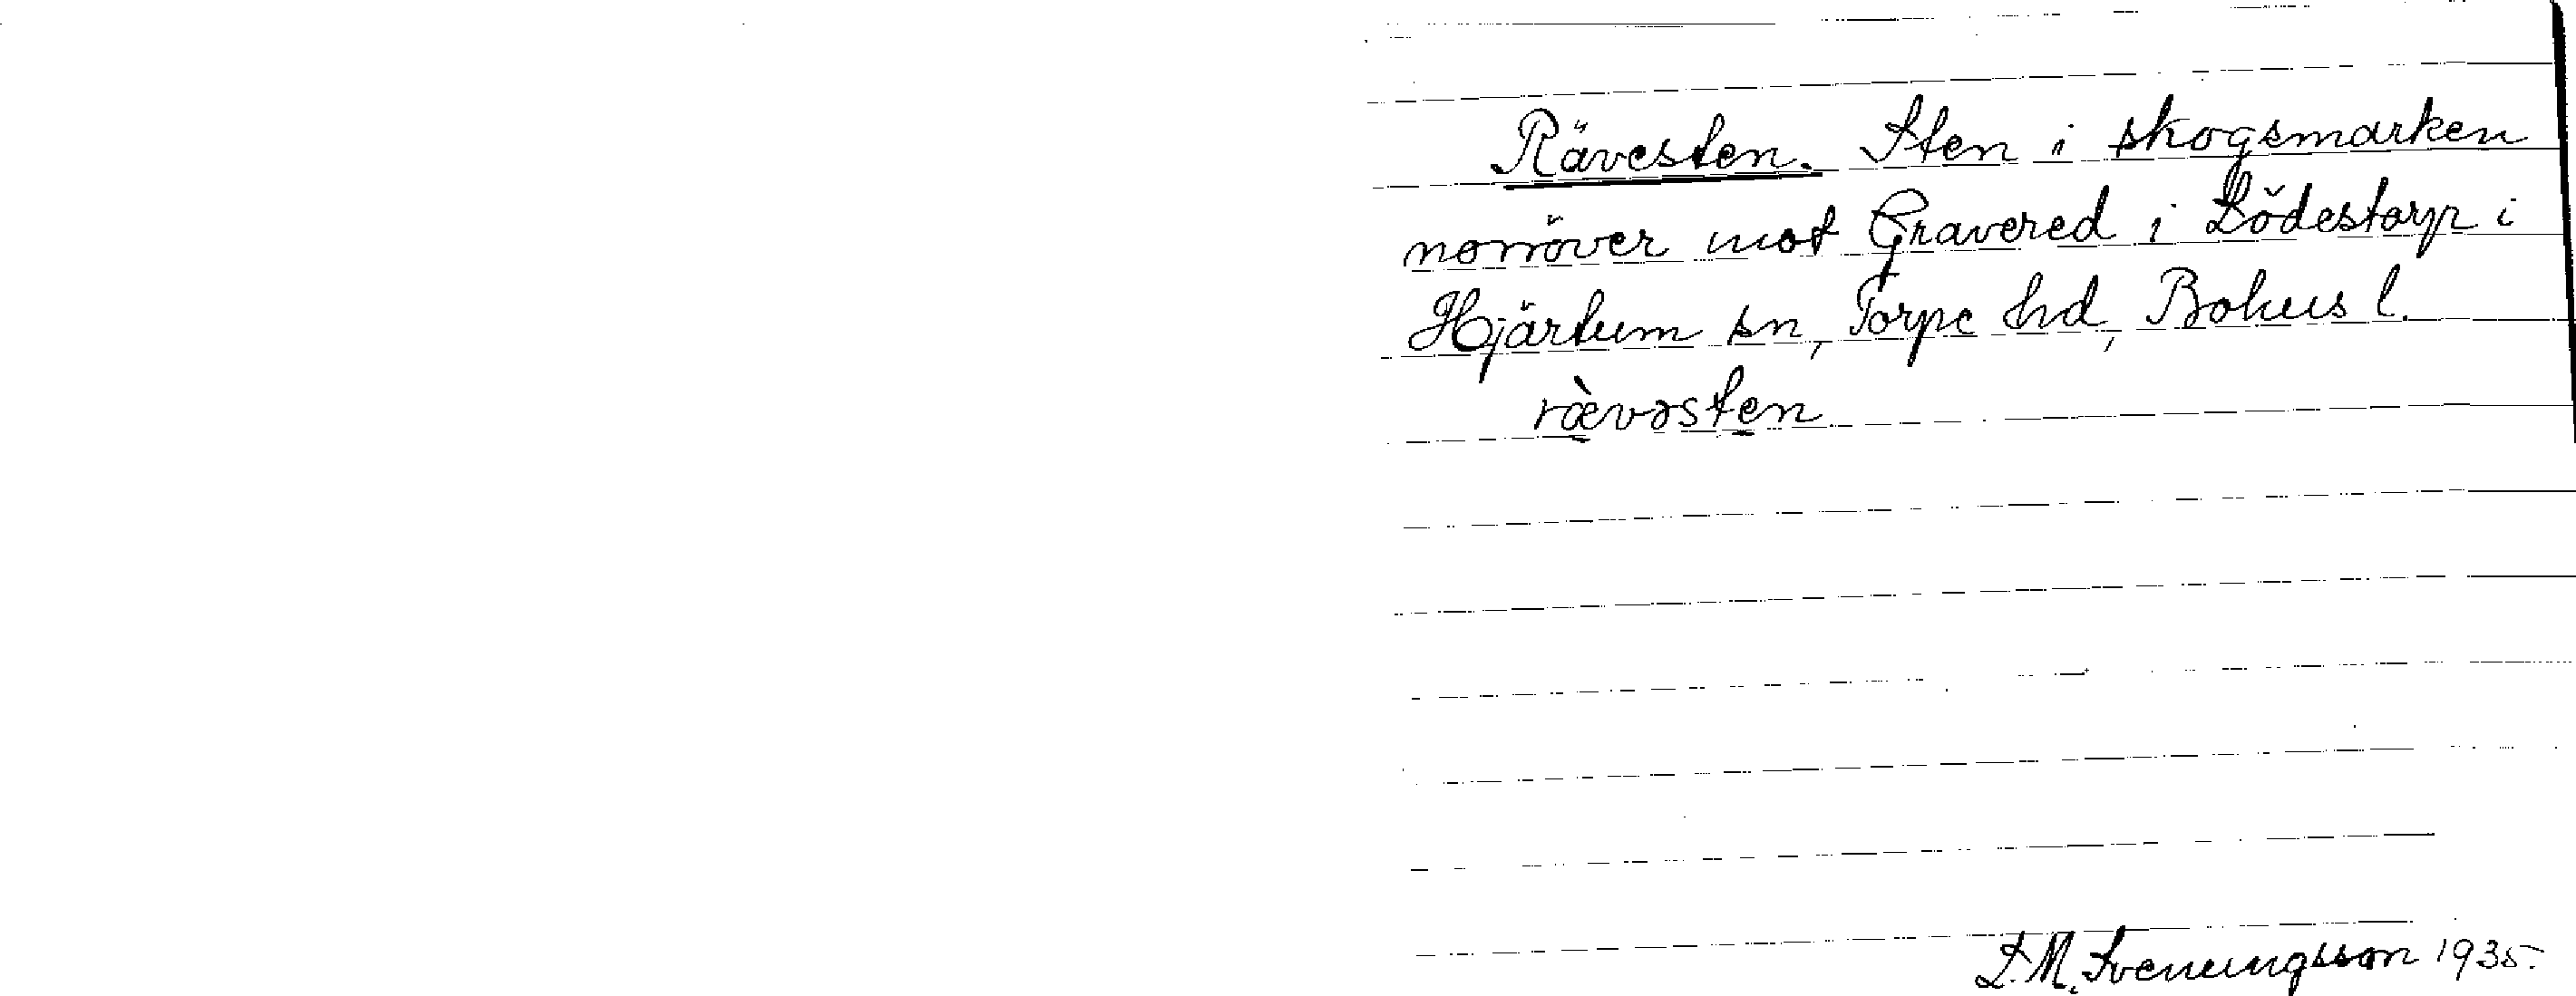 Rävesten. Sten i skogsmarken
norröver mot Gravered i Lödestorp i
Hjärtum sn, Torpe hd, Bohus l.
rævəsten
L. M. Svenungsson 1935.